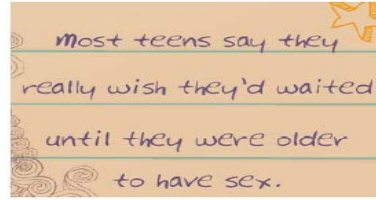 most teens say they
really wish they'd waited
until they were older
to have sex.